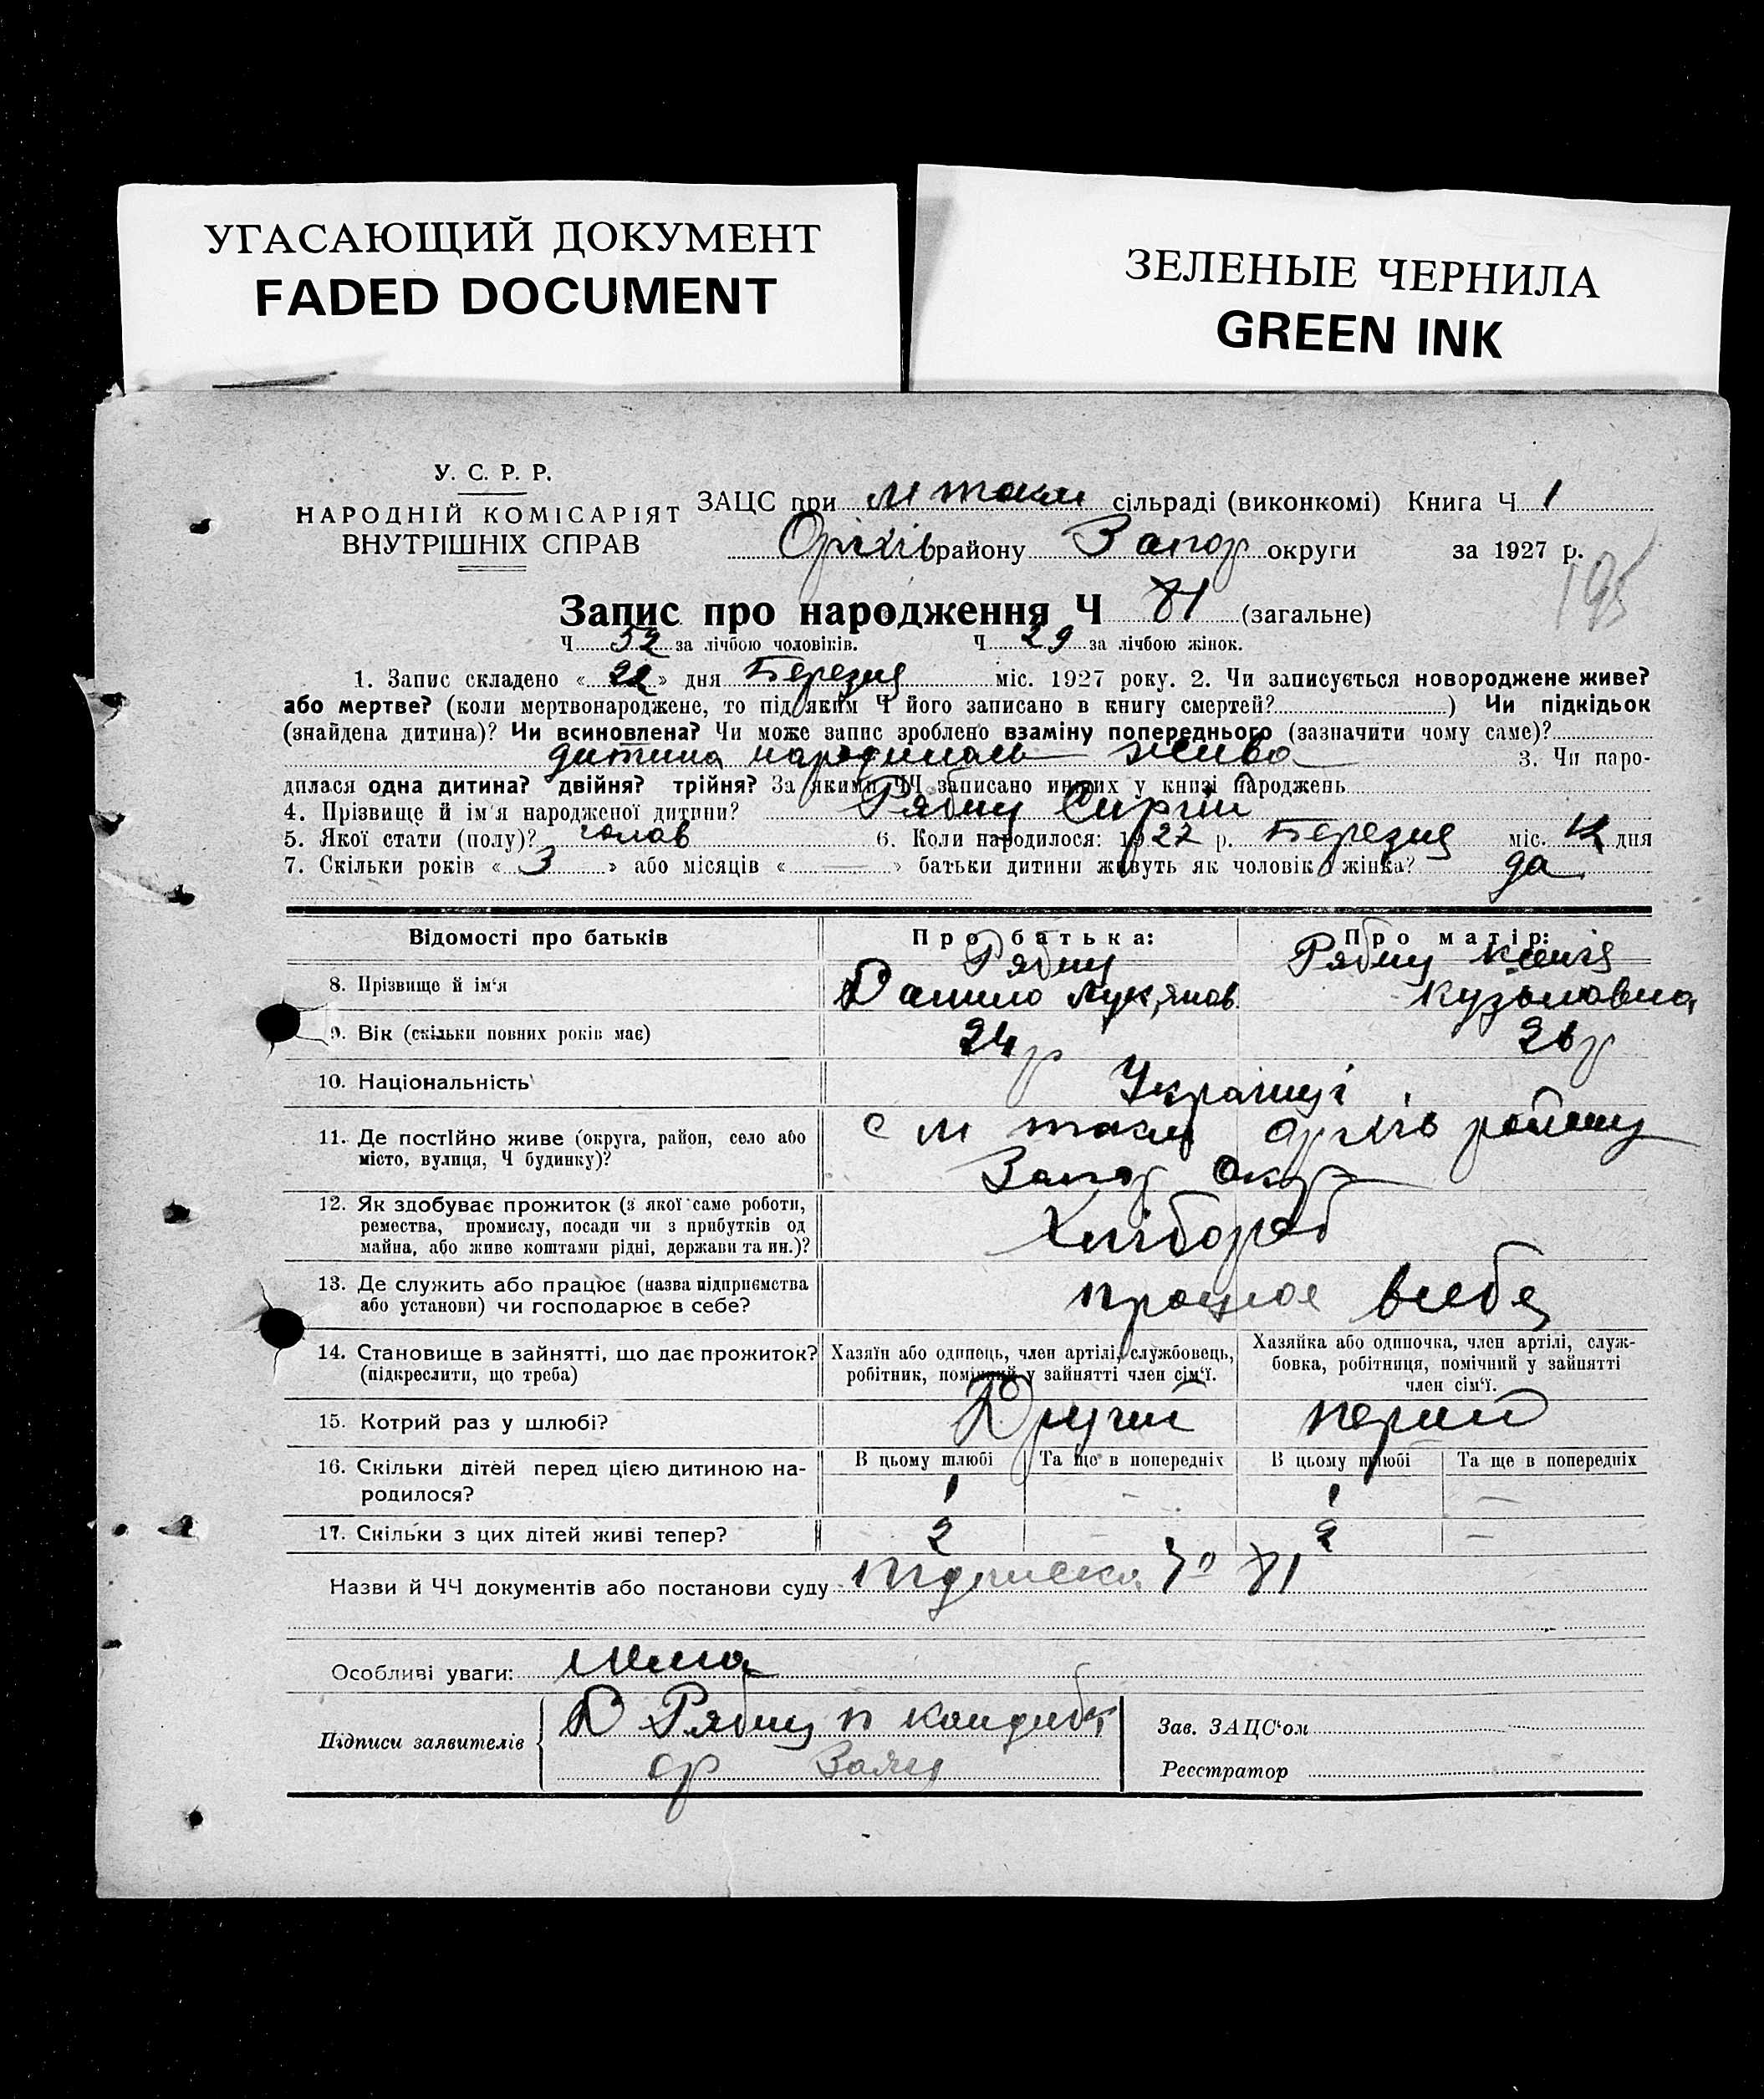 УГАСАЮЩИЙ ДОКУМЕНТ
FADED DOCUMENT
ЗЕЛЕНЫЕ ЧЕРНИЛА
GREEN INK
У. С. Р. Р.
НАРОДНІЙ КОМІСАРІЯТ
ВНУТРІШНІХ СПРАВ
ЗАЦС при м токм сільраді (виконкомі) Книга Ч 1
Оріхів району Запор округи за 1927 р.
195
Запис про народження Ч 81 (загальне)
Ч 52 за лічбою чоловіків. Ч 29 за лічбою жінок.
1. Запис складено « 22 » дня Березня міс. 1927 року. 2. Чи записується новороджене живе?
або мертве? (коли мертвонароджене, то під яким Ч його записано в книгу смертей? ) Чи підкідьок
(знайдена дитина)? Чи всиновлена? Чи може запис зроблено взаміну попереднього (зазначити чому саме)?
дитина народилась жива 3. Чи наро-
дилася одна дитина? двійня? трійня? За якими ЧЧ записано инших у книзі народжень
4. Прізвище й ім'я народженої дитини? Рябиц Сиргій
5. Якої стати (полу)? чолов 6. Коли народилося: 1927 р. Березня міс. дня
7. Скільки років « 3 » або місяців « — » батьки дитини живуть як чоловік і жінка? да
Відомості про батьків Про батька: Про матір:
8. Прізвище й ім'я Рябиц Рябиц
Данило Лук,янов. Кузьмовна
9. Вік (скільки повних років має) 24 р 26 р
10. Національність Українці
11. Де постійно живе (округа, район, село або с м токм оріхів району
місто, вулиця, Ч будинку)? Запор Окр
12. Як здобуває прожиток (з якої саме роботи,
ремества, промислу, посади чи з прибутків од Хлібороб
майна, або живе коштами рідні, держави та ин.)?
13. Де служить або працює (назва підприємства працює в себе
або установи) чи господарює в себе?
14. Становище в зайнятті, що дає прожиток? Хазяїн або одинець, член артілі, службовець, Хазяйка або одиночка, член артілі, служ-
(підкреслити, що треба) робітник, помічний у зайнятті член сім'ї. бовка, робітниця, помічний у зайнятті
член сім'ї.
15. Котрий раз у шлюбі? Другий перий
16. Скільки дітей перед цією дитиною на- В цьому шлюбі Та ще в попередніх В цьому шлюбі Та ще в попередніх
родилося? 1 — 1 —
17. Скільки з цих дітей живі тепер? 2 — 2 —
Назви й ЧЧ документів або постанови суду Підписка 81
Особливі уваги: нема
Підписи заявителів Д Рябиц п кандиба
ср Заяц
Зав. ЗАЦС'ом
Реєстратор